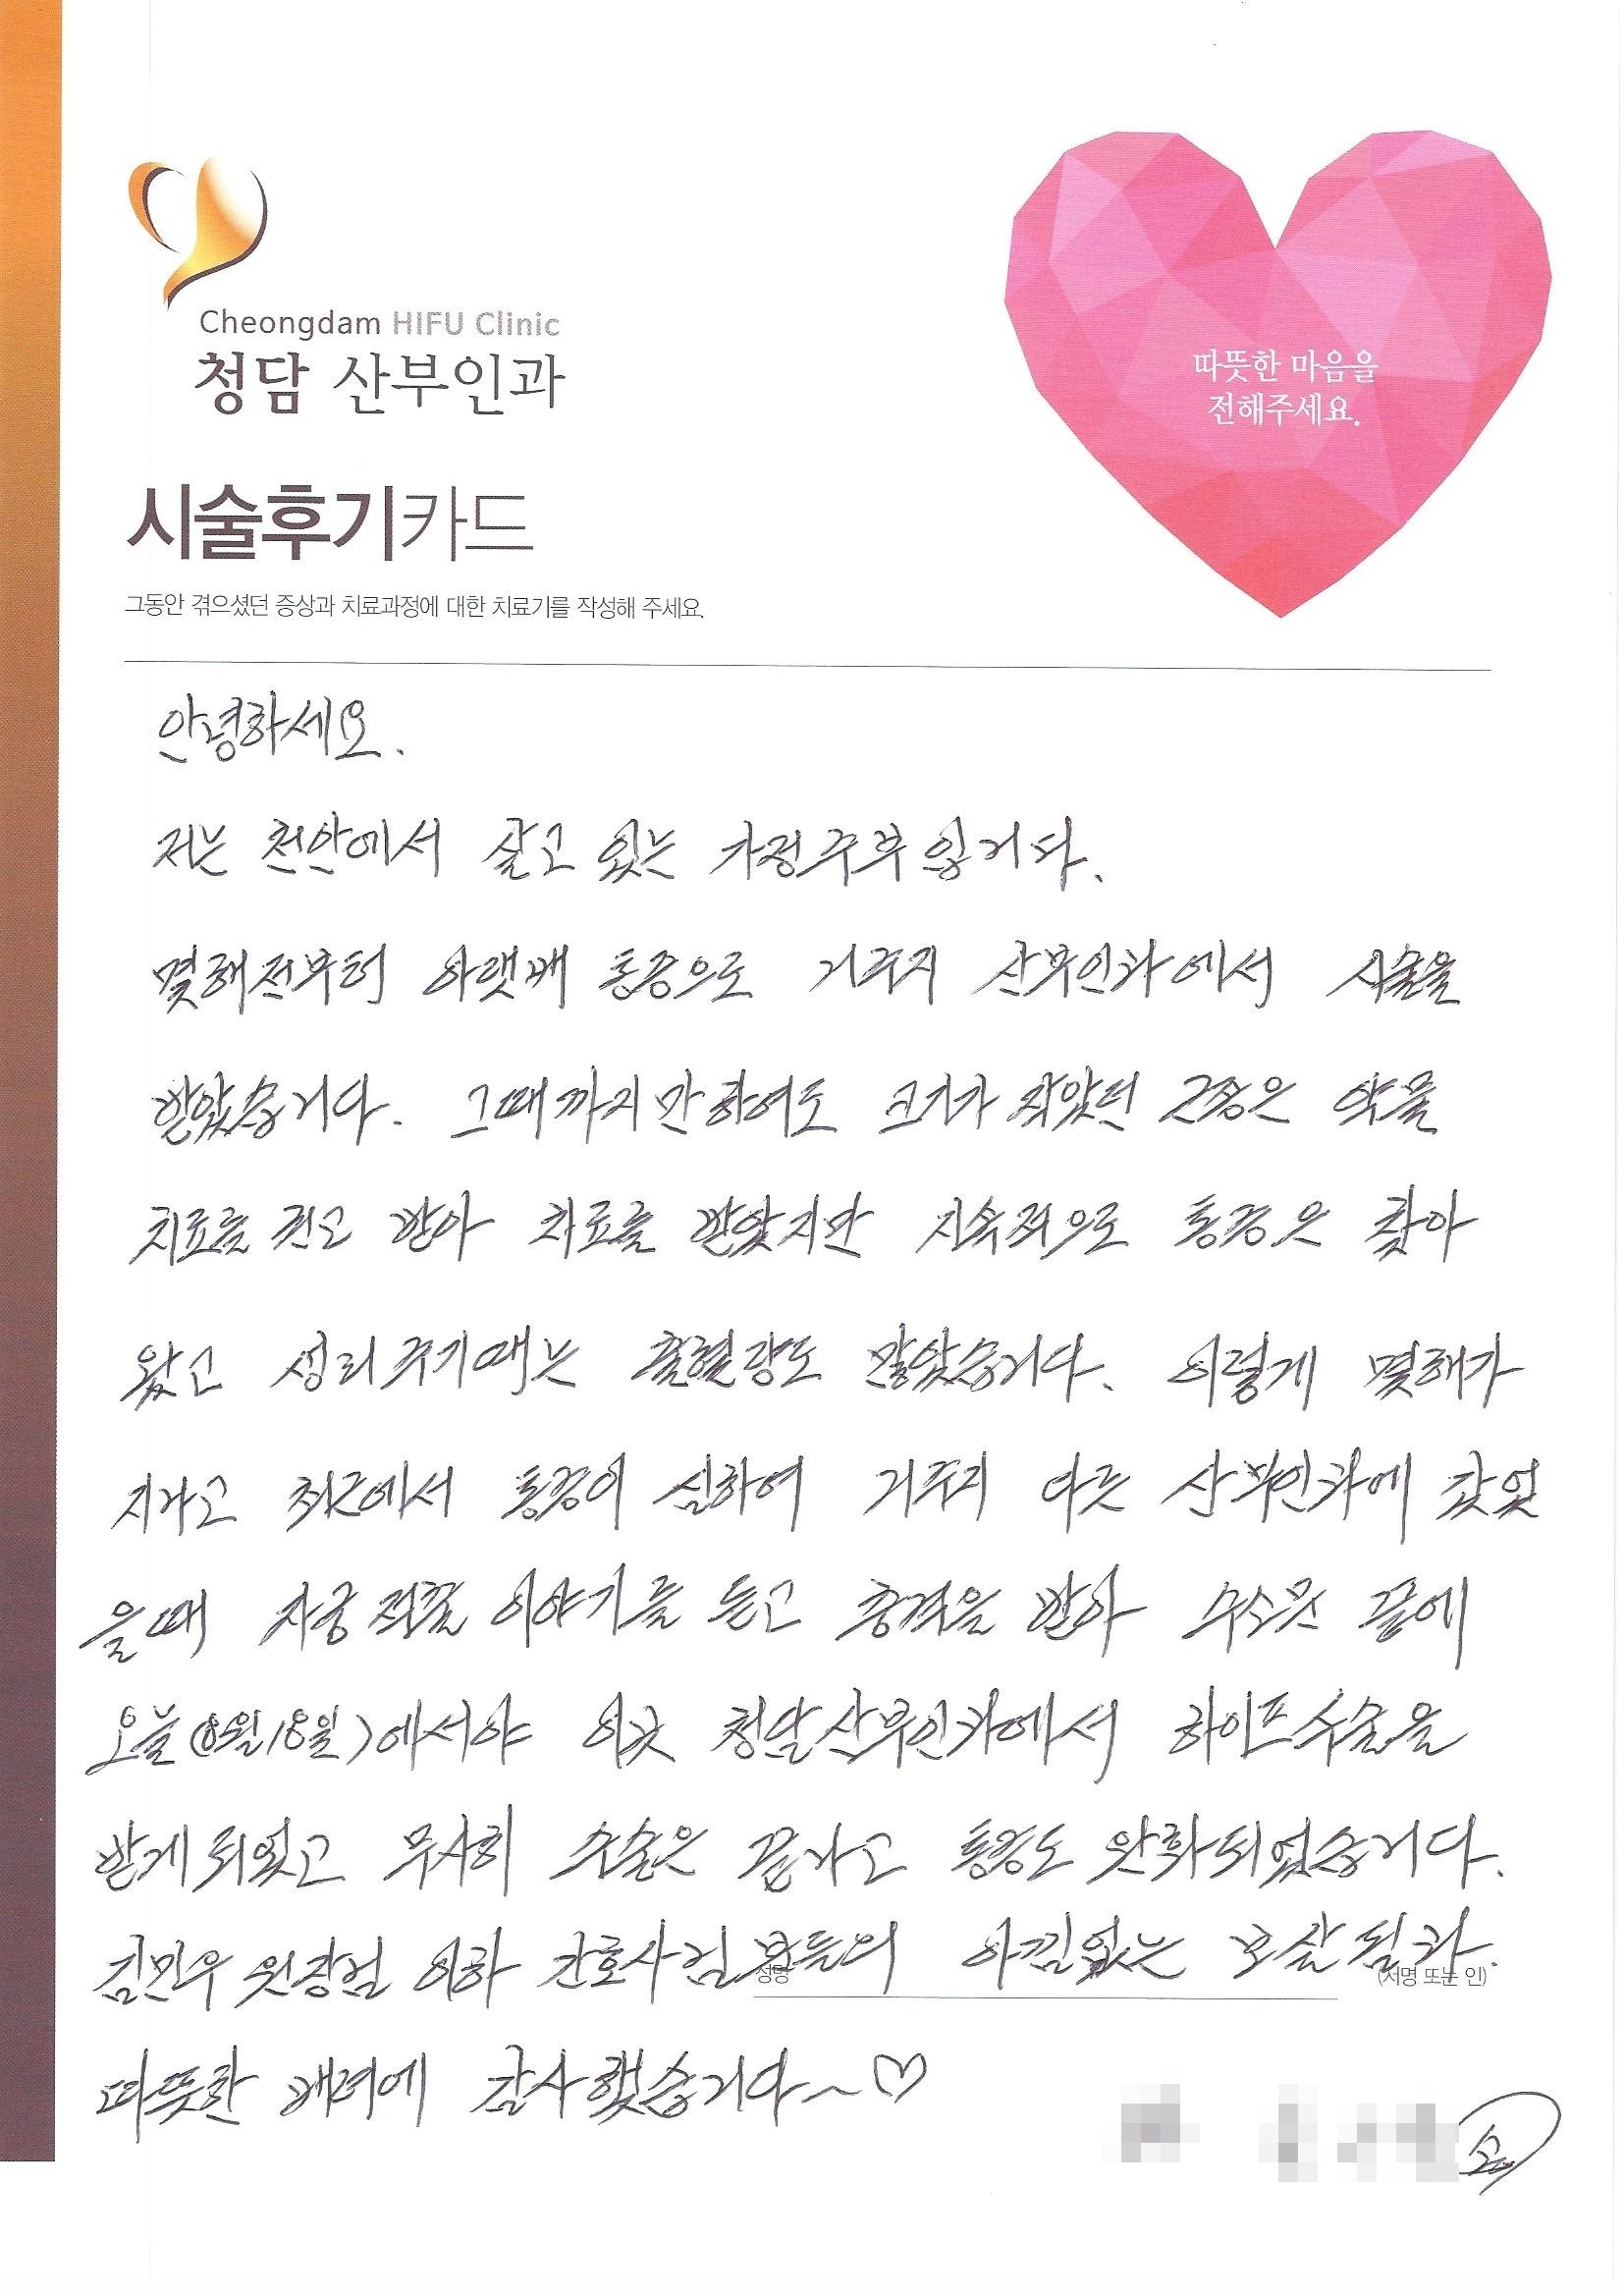 Cheongdam HIFU Clinic
청담 산부인과
따뜻한 마음을
전해주세요.
시술후기카드
그동안 겪으셨던 증상과 치료과정에 대한 치료기를 작성해 주세요.
안녕하세요.
저는 천안에서 살고 있는 가정주부 입니다.
몇해전부터 아랫배 통증으로 거주지 산부인과에서 시술을
받았습니다. 그때까지만 하여도 크기가 작았던 근종은 약물
치료를 권고 받아 치료를 받았지만 지속적으로 통증은 찾아
왔고 생리주기때는 출혈량도 많았습니다. 이렇게 몇해가
지나고 최근에서 통증이 심하여 거주지 다른 산부인과에 갔었
을때 자궁적출 이야기를 듣고 충격을 받아 수소문 끝에
오늘(8월18일)에서야 이곳 청담산부인과에서 하이프수술을
받게되었고 무사히 수술은 끝나고 통증도 완화되었습니다.
김민우 원장님 이하 간호사님분들의 아낌없는 보살핌과.
성명
(서명 또는 인)
따뜻한 배려에 감사했습니다~♡